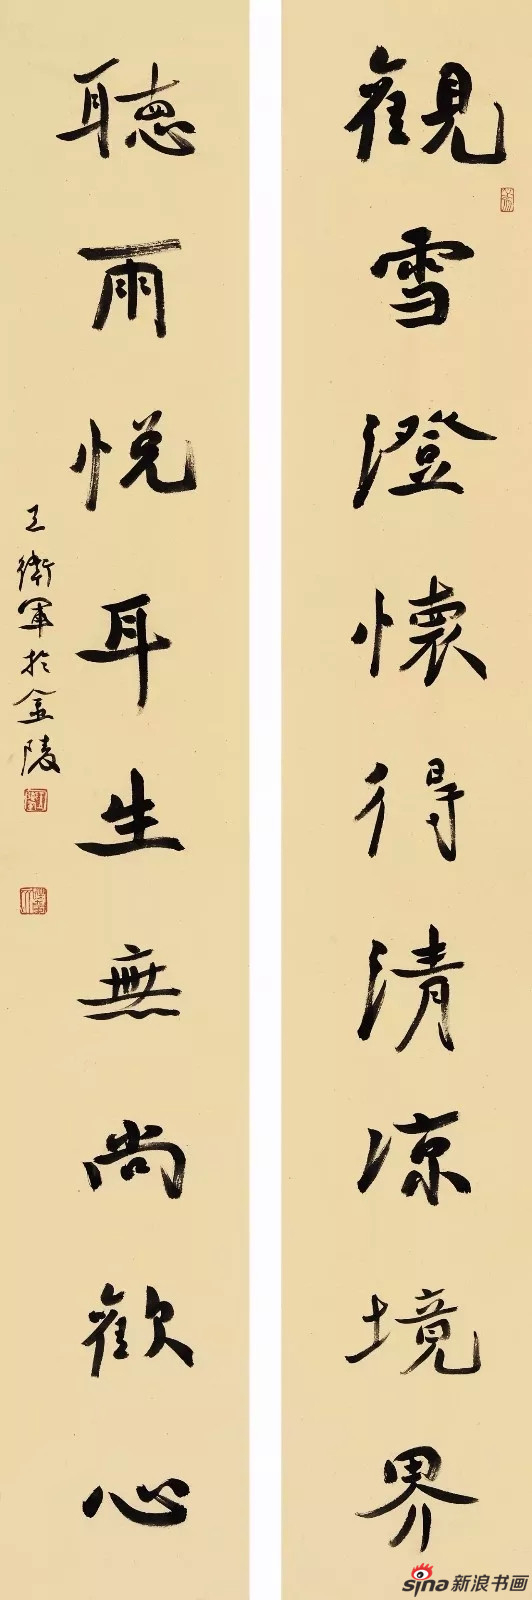 觀雪澄懷得清凉境界
聽雨悦耳生無尚歡心
王衛軍於金陵
sina新浪书画